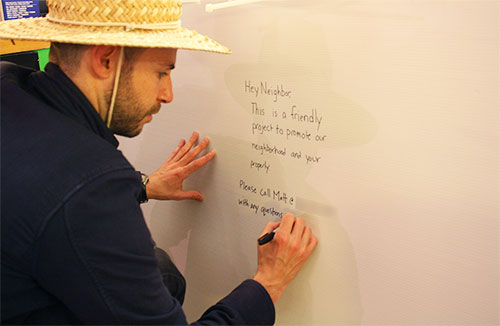 Hey Neighbor,
This is a friendly
project to promote our
neighborhood and your
properly
Please Call Matt @
with any questions